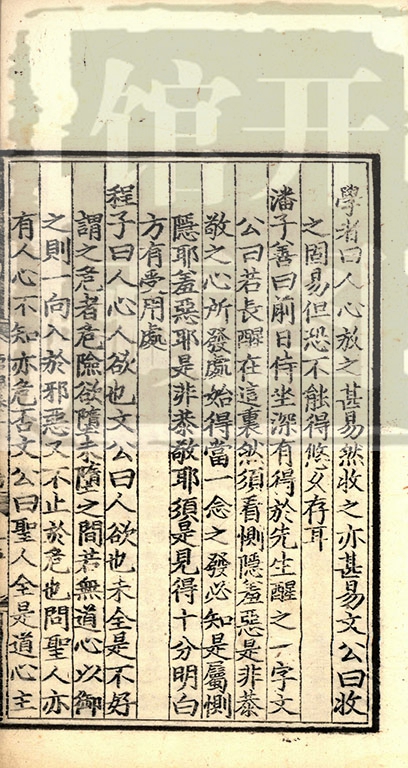 學者曰人心放之甚易然收之亦甚易文公曰收
之固易但恐不能得悠久存耳
潘子善曰前日侍坐深有得於先生醒之一字文
公曰若長醒在這裏然須看惻隱羞惡是非恭
敬之心所發處始得當一念之發必知是屬惻
隱耶羞惡耶是非恭敬耶須是見得十分明白
方有受用處
程子曰人心人欲也文公曰人欲也未全是不好
謂之危者危險欲墮未墮之間若無道心以御
之則一向入於邪惡又不止於危也問聖人亦
有人心不知亦危否文公曰聖人全是道心主
开
馆